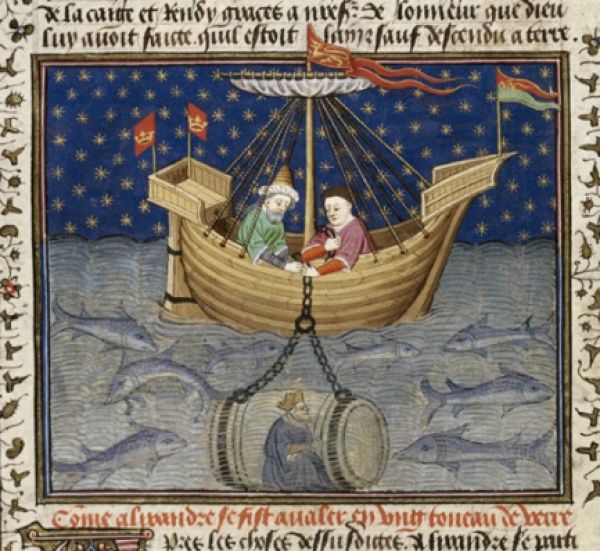 de la caige et Rendy graces a De lonneur que dieu
luy auoit faicte. quil estoit sauf descendu a terre
Cōme alixandre se fist aualer en vng toneau de verre
Pres les choses dessusdictes. Alixandre se parti